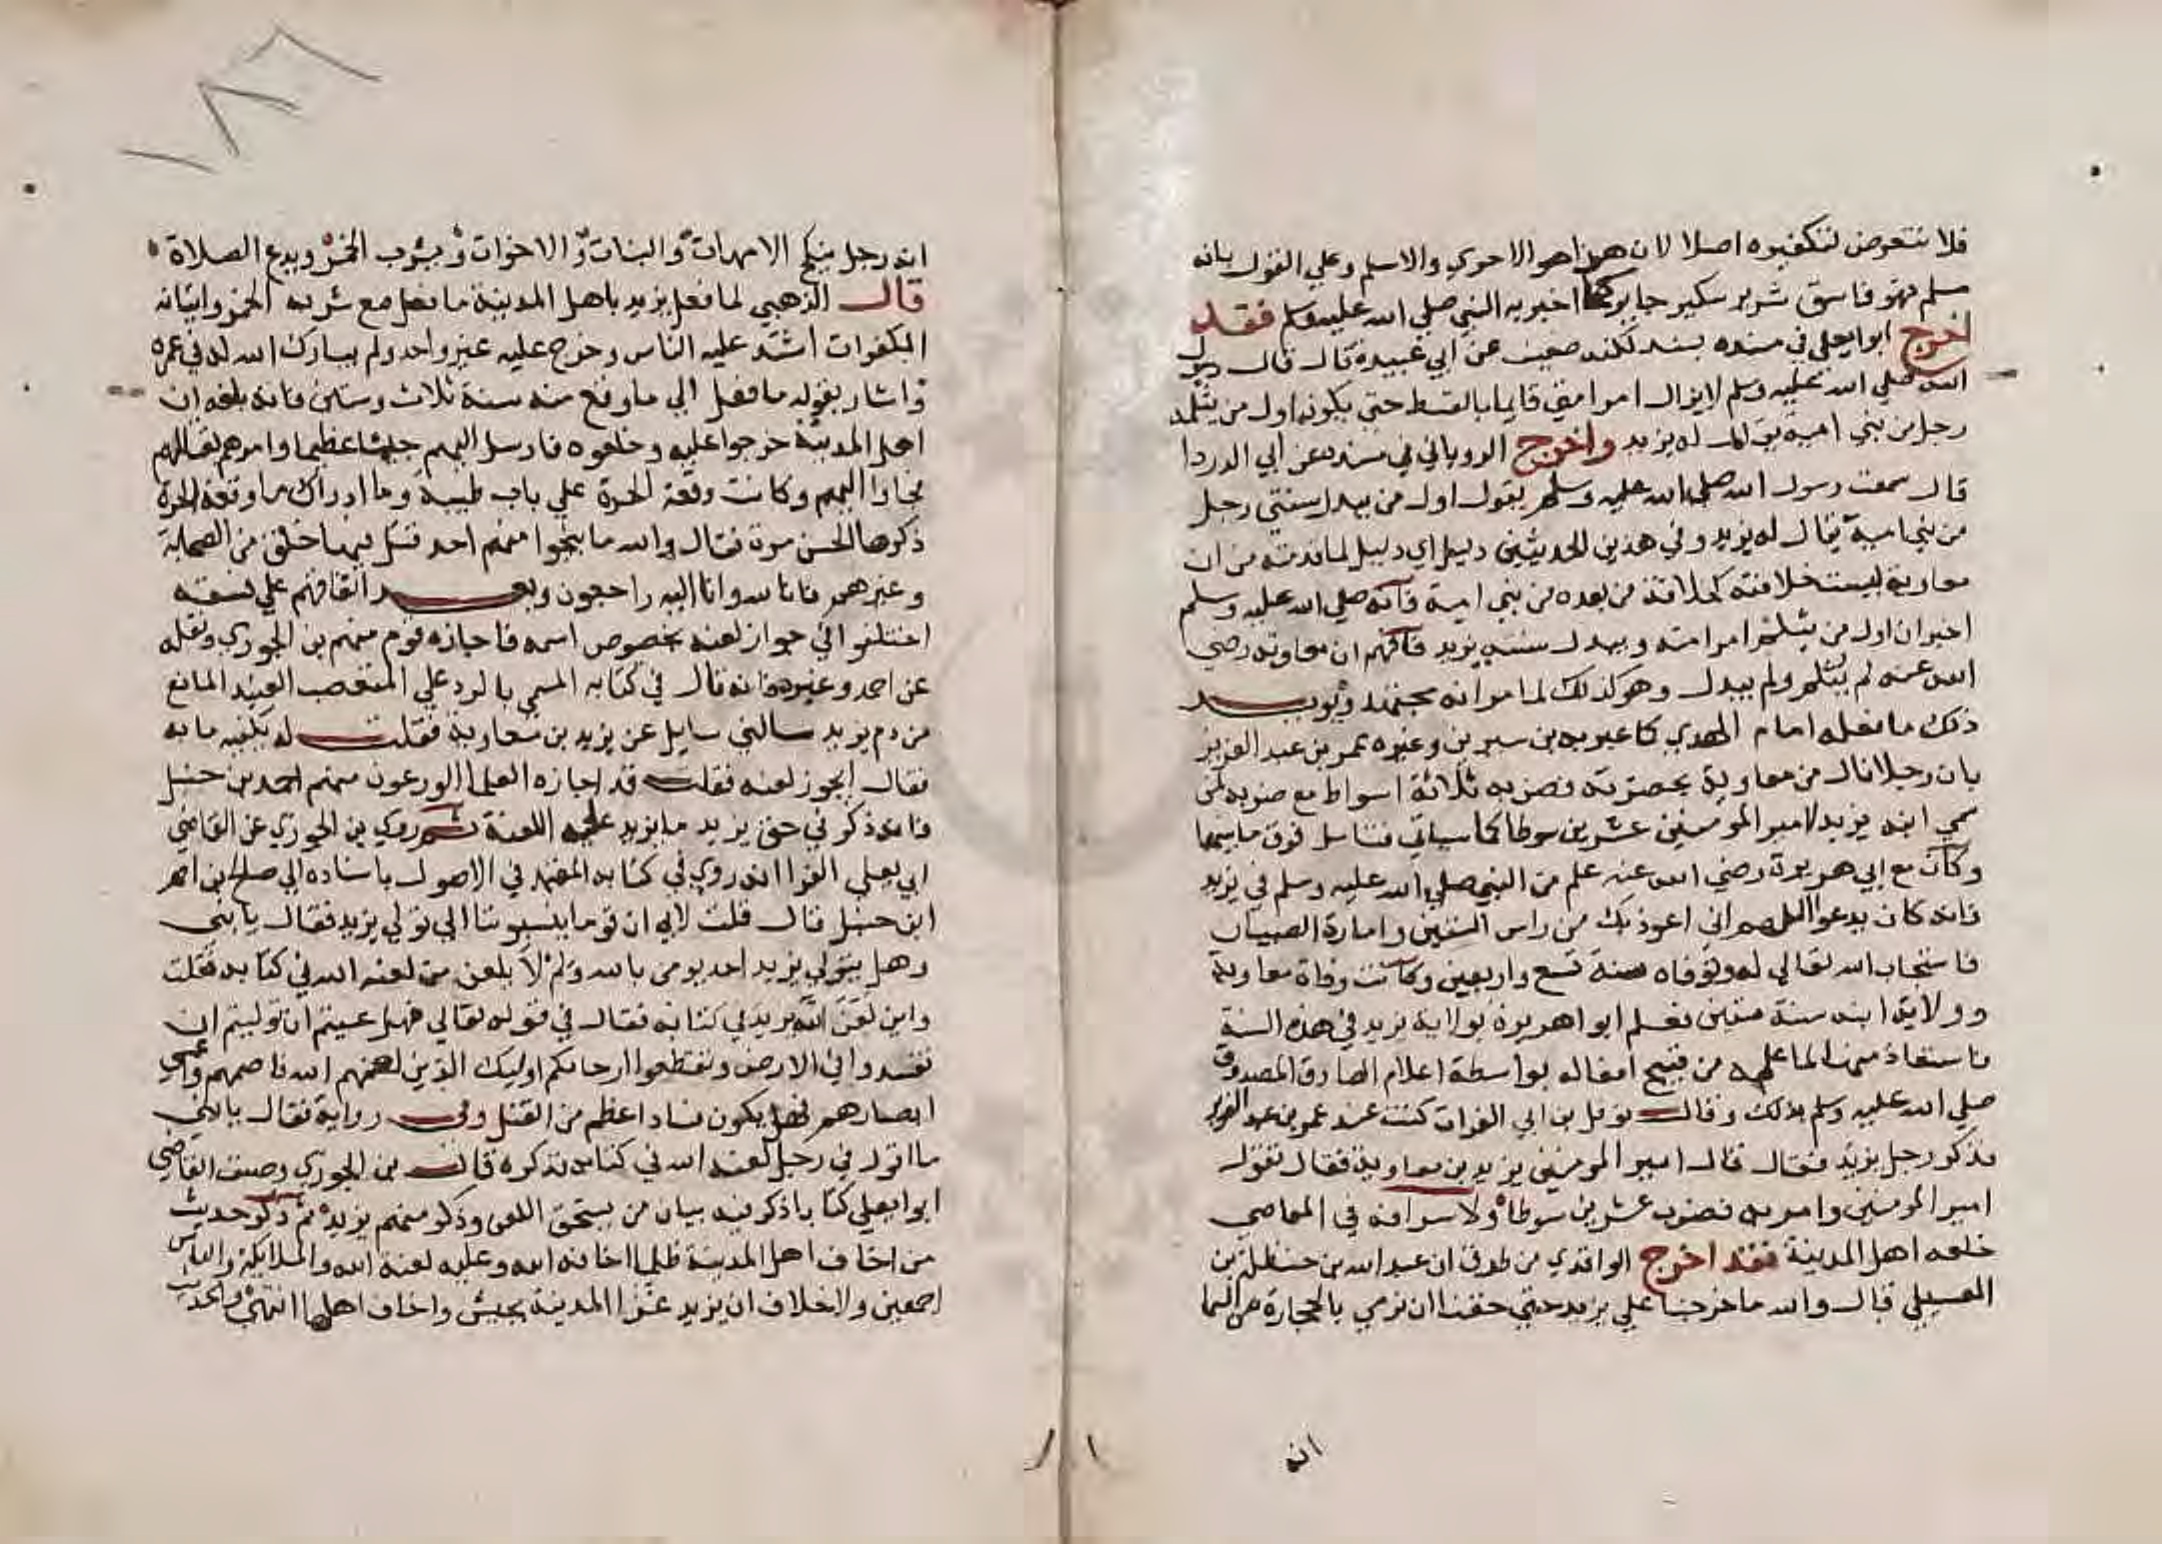 فلا نتعرض لتكفيره اصلا لان هذا هو الاحري والاسلم وعلي القول بانه
مسلم فهو فاسق شرير سكير جاير كما اخبر به النبي صلي الله عليه وسلم فقد
اخرج ابو يعلي في مسنده بسند لكنه ضعيف عن ابي عبيدة قال قال رسول
الله صلي الله عليه وسلم لا يزال امر امتي قايما بالقسط حتي يكون اول من يثلمه
رجل من بني امية يقال له يزيد واخرج الروياني في مسنده عن ابي الدردا
قال سمعت رسول الله صلي الله عليه وسلم يقول اول من يبدل سنتي رجل
من بني امية يقال له يزيد وفي هذين الحديثين دليل اي دليل لما قدمته من ان
معاوية ليست خلافته كخلافة من بعده من بني امية فانه صلي الله عليه وسلم
اخبر ان اول من يثلم امر امته ويبدل سنته يزيد فافهم ان معاوية رضي
الله عنه لم يثلم ولم يبدل وهو كذلك لما مر انه مجتهد ويويد
ذلك ما فعله امام المهدي كما عبر به بن سيرين وغيره عمر بن عبد العزيز
بان رجلا نال من معاوية بحضرته فضربه ثلاثة اسواط مع ضربه لمن
سمي ابنه يزيد امير المومنين عشرين سوطا كما سياتي فتامل فرق ما بينهما
وكان مع ابي هريرة رضي الله عنه علم من النبي صلي الله عليه وسلم في يزيد
فانه كان يدعو اللهم اني اعوذ بك من راس الستين وامارة الصبيان
فاستجاب الله تعالي له وتوفاه سنة تسع واربعين وكانت وفاة معاوية
وولاية ابنه سنة ستين فعلم ابو هريرة بولاية يزيد في هذه السنة
فاستعاذ منها لما علمه من قبيح افعاله بواسطة اعلام الصادق المصدوق
صلي الله عليه وسلم بذلك وقال نوفل بن ابي الفرات كنت عند عمر بن عبد العزيز
فذكر رجل يزيد فقال قال امير المومنين يزيد بن معاوية فقال تقول
امير المومنين وامر به فضرب عشرين سوطا ولاسرافه في المعاصي
خلعه اهل المدينة فقد اخرج الواقدي من طرق ان عبد الله بن حنظلة بن
الغسيلي قال والله ما خرجنا علي يزيد حتي خفنا ان نرمي بالحجارة من السما
انه
١٨٦
انه رجل ينكح الامهات والبنات والاخوات ويشرب الخمر ويدع الصلاة
قال الذهبي لما فعل يزيد باهل المدينة ما فعل مع شربه الخمر واتيانه
المكفرات اشتد عليه الناس وخرج عليه غير واحد ولم يبارك الله له في عمره
واشار بقوله ما فعل الي ما وقع منه سنة ثلاث وستين فانه بلغه ان
اهل المدينة خرجوا عليه وخلعوه فارسل اليهم جيشا عظيما وامرهم بقتالهم
فجاوا اليهم وكانت وقعة الحرة علي باب طيبة وما ادراك ما وقعة الحرة
ذكرها الحسن مرة فقال والله ما ينجوا منهم احد قتل فيها خلق من الصحابة
وغيرهم فانا لله وانا اليه راجعون وبعد اتفاقهم علي فسقه
اختلفوا في جواز لعنه بخصوص اسمه فاجازه قوم منهم بن الجوزي ونقله
عن احمد وغيره فانه قال في كتابه المسمي بالرد علي المتعصب العنيد المانع
من ذم يزيد سالني سايل عن يزيد بن معاوية فقلت له يكفيه ما به
فقال ايجوز لعنه فقلت قد اجازه العلما الورعون منهم احمد بن حنبل
فانه ذكر في حق يزيد ما يزيد علي اللعنة ثم روي بن الجوزي عن القاضي
ابي يعلي الفرا انه روي في كتابه المعتمد في الاصول باسناده الي صالح بن احمد
ابن حنبل قال قلت لابي ان قوما ينسبوننا الي تولي يزيد فقال يا بني
وهل يتولي يزيد احد يومن بالله ولم لا يلعن من لعنه الله في كتابه فقلت
واين لعن الله يزيد في كتابه فقال في قوله تعالي فهل عسيتم ان توليتم ان
تفسدوا في الارض وتقطعوا ارحامكم اوليك الذين لعنهم الله فاصمهم واعمي
ابصارهم فهل يكون فساد اعظم من القتل وفي رواية فقال يا بني
ما اقول في رجل لعنه الله في كتابه فذكره قال بن الجوزي وصنف القاضي
ابو يعلي كتابا ذكر فيه بيان من يستحق اللعن وذكر منهم يزيد ثم ذكر حديث
من اخاف اهل المدينة ظلما اخافه الله وعليه لعنة الله والملايكة والناس
اجمعين ولا خلاف ان يزيد غزا المدينة بجيش واخاف اهلها انتهي والحديث